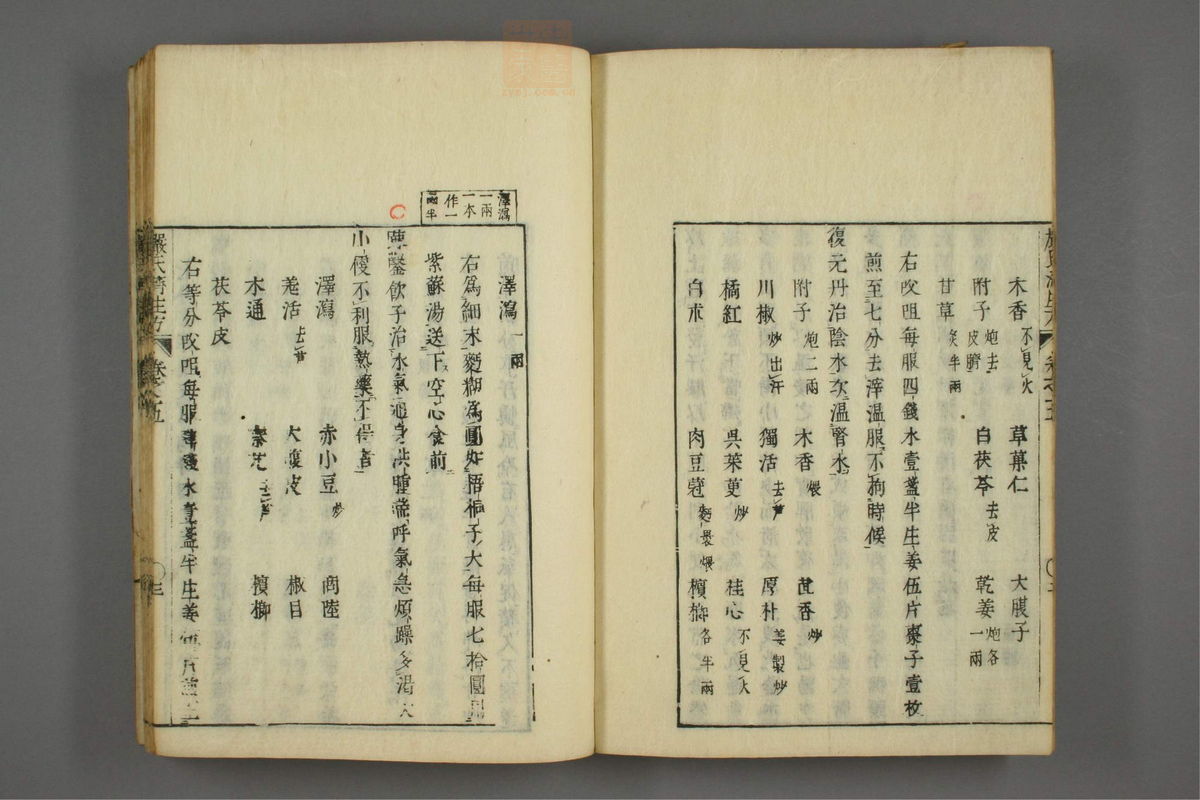 木香不見火 草菓仁 大腹子
附子炮去皮臍 白茯苓去皮 乾姜炮各一兩
甘草炙半兩
右㕮咀每服四錢水壹盞半生姜伍片棗子壹枚
煎至七分去滓温服不拘時候
復元丹治陰水次温腎水
附子炮二兩 木香煨 茴香炒
川椒炒出汗 獨活去芦 厚朴姜製炒
橘紅 呉茱萸炒 桂心不見火
白朮 肉豆蔻麪裹煨 檳榔各半兩
澤瀉一兩一本作一兩半
澤瀉一兩
右為細末麪糊為圓如梧桐子大每服七拾圓用
紫蘇湯送下空心食前
疎鑿飲子治水氣通身洪腫喘呼氣急煩躁多渴大
小便不利服熱藥不得者
澤瀉 赤小豆炒 商陸
羌活去芦 大腹皮 椒目
木通 秦艽去芦 檳榔
茯苓皮
右等分㕮咀每服肆錢水壹盞半生姜片
嚴氏濟生方 卷之五 三